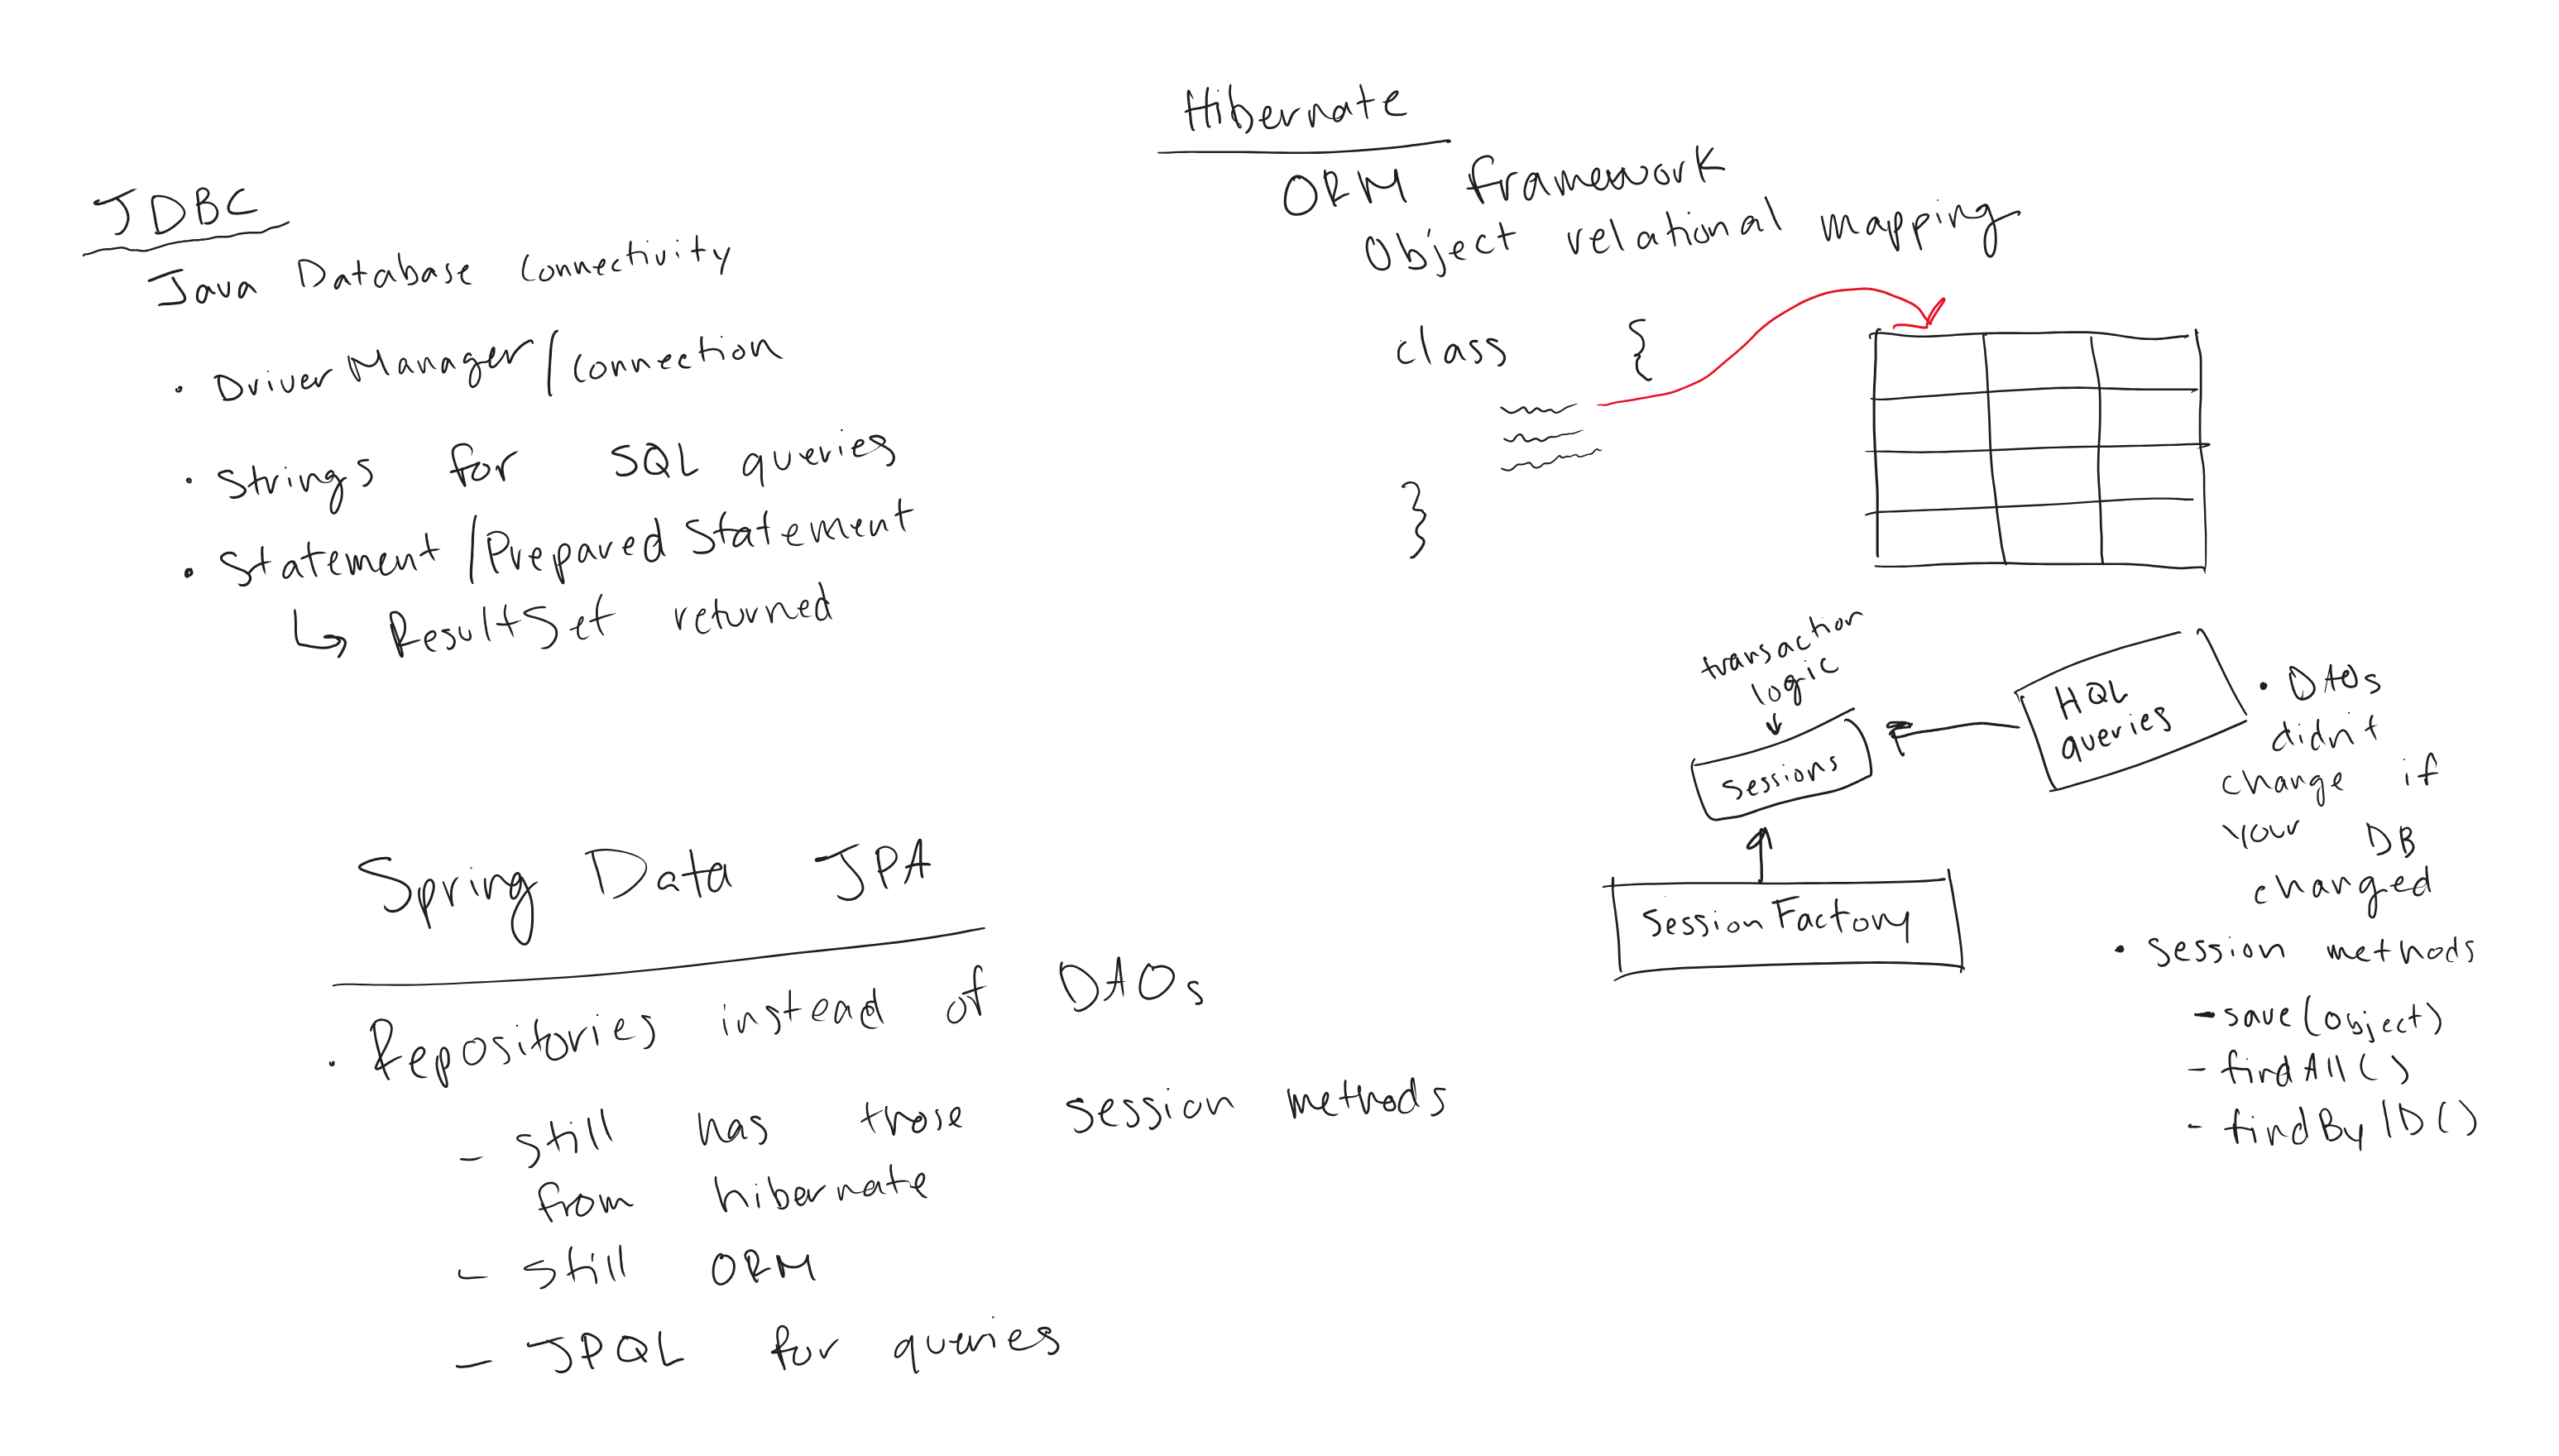 JDBC
Java Database Connectivity
• DriverManager/Connection
• Strings for SQL queries
• Statement/PreparedStatement
↳ ResultSet returned
Hibernate
ORM framework
Object relational mapping
class {
}
transaction
logic
Sessions
HQL
queries
SessionFactory
• DAOs
didn't
change if
your DB
changed
• session methods
- save(object)
- findAll()
- findByID()
Spring Data JPA
• Repositories instead of DAOs
- still has those session methods
from hibernate
- still ORM
- JPQL for queries